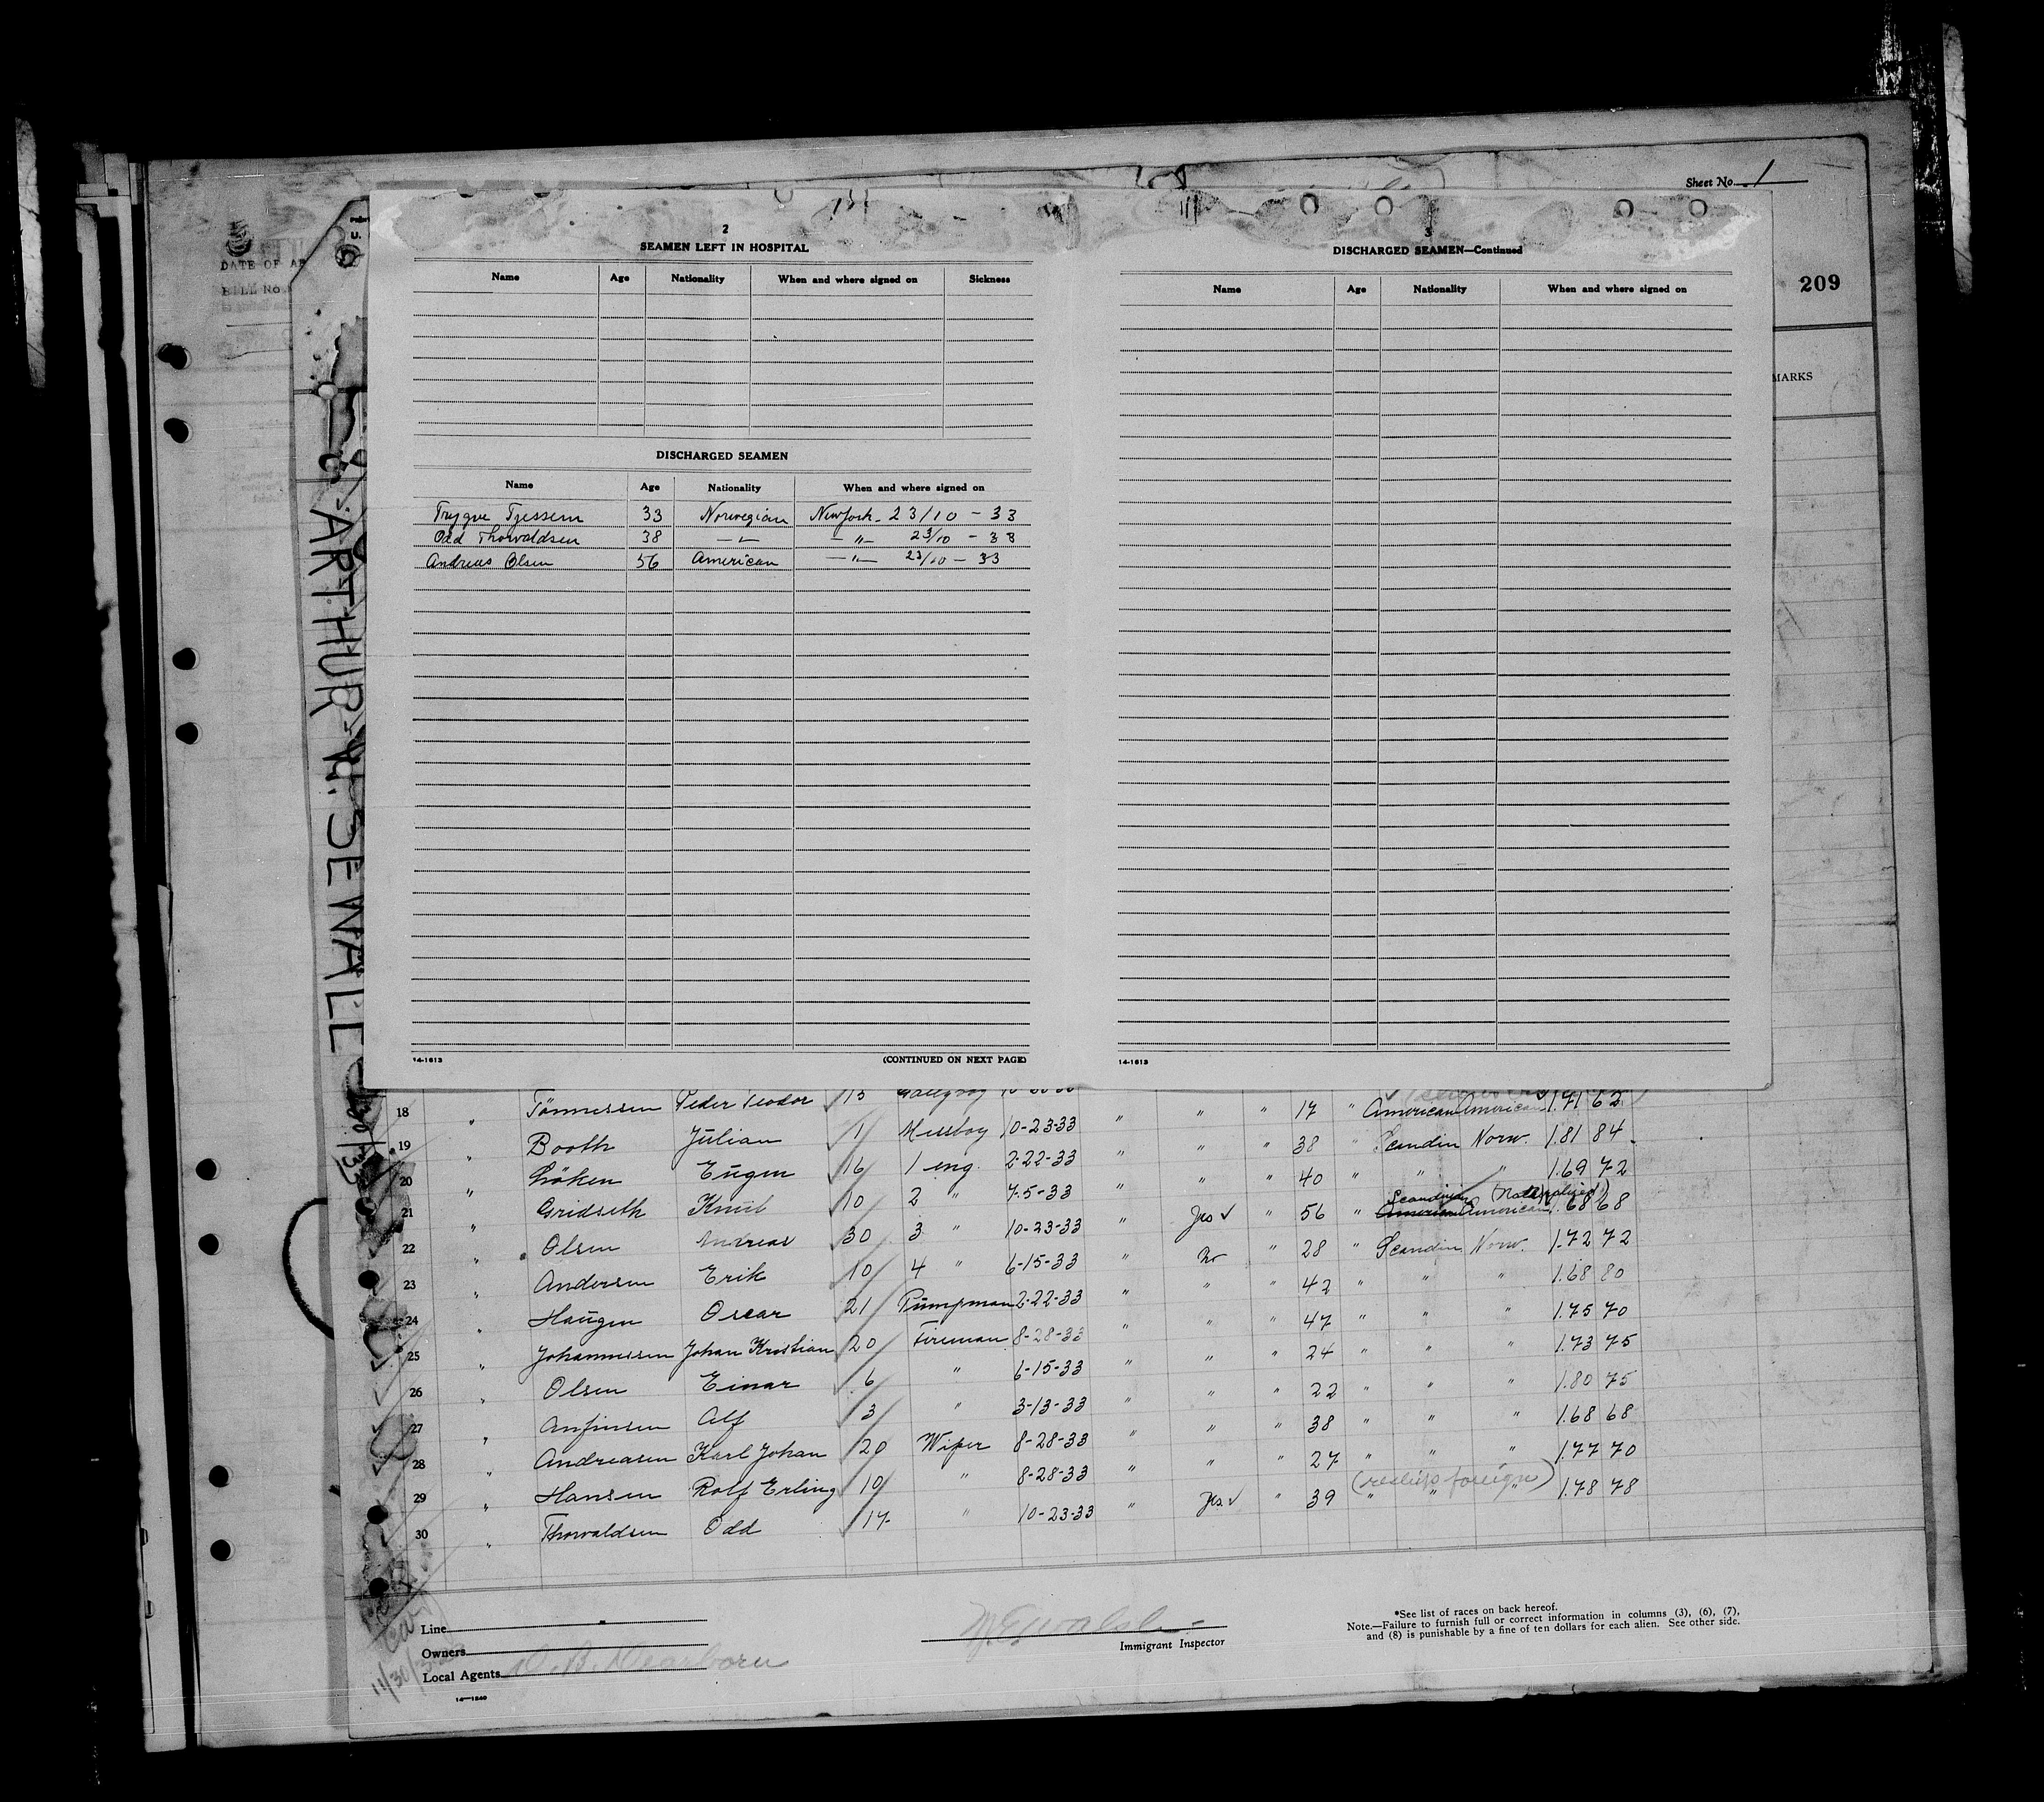 Sheet No. 1
209
MARKS
DATE OF AR
BILL No.
U.
ARTHUR W. SEWALL
2
SEAMEN LEFT IN HOSPITAL
Name Age Nationality When and where signed on Sickness
DISCHARGED SEAMEN
Name Age Nationality When and where signed on
Trygve Tjessem 33 Norwegian New York - 23/10 - 33
Odd Thorvaldsen 38 —"— —"— 23/10 - 33
Andreas Olsen 56 American —"— 23/10 - 33
14-1613 (CONTINUED ON NEXT PAGE)
3
DISCHARGED SEAMEN—Continued
Name Age Nationality When and where signed on
14-1613
18 " Tönnessen Peder Teodor 15 10-
19 " Booth Julian 1 Messboy 10-23-33 " " " 17 " American American 1.71 62
20 " Löken Eugen 16 1 eng. 2-22-33 " " " 38 " Scandin Norw. 1.81 84
21 " Gridseth Knut 10 2 " 7-5-33 " " " 40 " " " 1.69 72
22 " Olsen Andreas 30 3 " 10-23-33 " Yes " 56 " Scandinavian (Naturalized) American American 1.68 68
23 " Andersen Erik 10 4 " 6-15-33 " No " 28 " Scandin Norw. 1.72 72
24 " Haugen Oscar 21 Pumpman 2-22-33 " " " 42 " " " 1.68 80
25 " Johannessen Johan Kristian 20 Fireman 8-28-33 " " " 47 " " " 1.75 70
26 " Olsen Einar 6 " 6-15-33 " " " 24 " " " 1.73 75
27 " Anfinsen Alf 3 " 3-13-33 " " " 22 " " " 1.80 75
28 " Andreasen Karl Johan 20 Wiper 8-28-33 " " " 38 " " " 1.68 68
29 " Hansen Rolf Erling 10 " 8-28-33 " " " 27 " " " 1.77 70
30 " Thorvaldsen Odd 17 " 10-23-33 " Yes " 39 " " " (reships foreign) 1.78 78
Line
Owners
Local Agents D. B. Dearborn
14—1240
11/30/33
Immigrant Inspector
*See list of races on back hereof.
Note.—Failure to furnish full or correct information in columns (3), (6), (7),
and (8) is punishable by a fine of ten dollars for each alien. See other side.